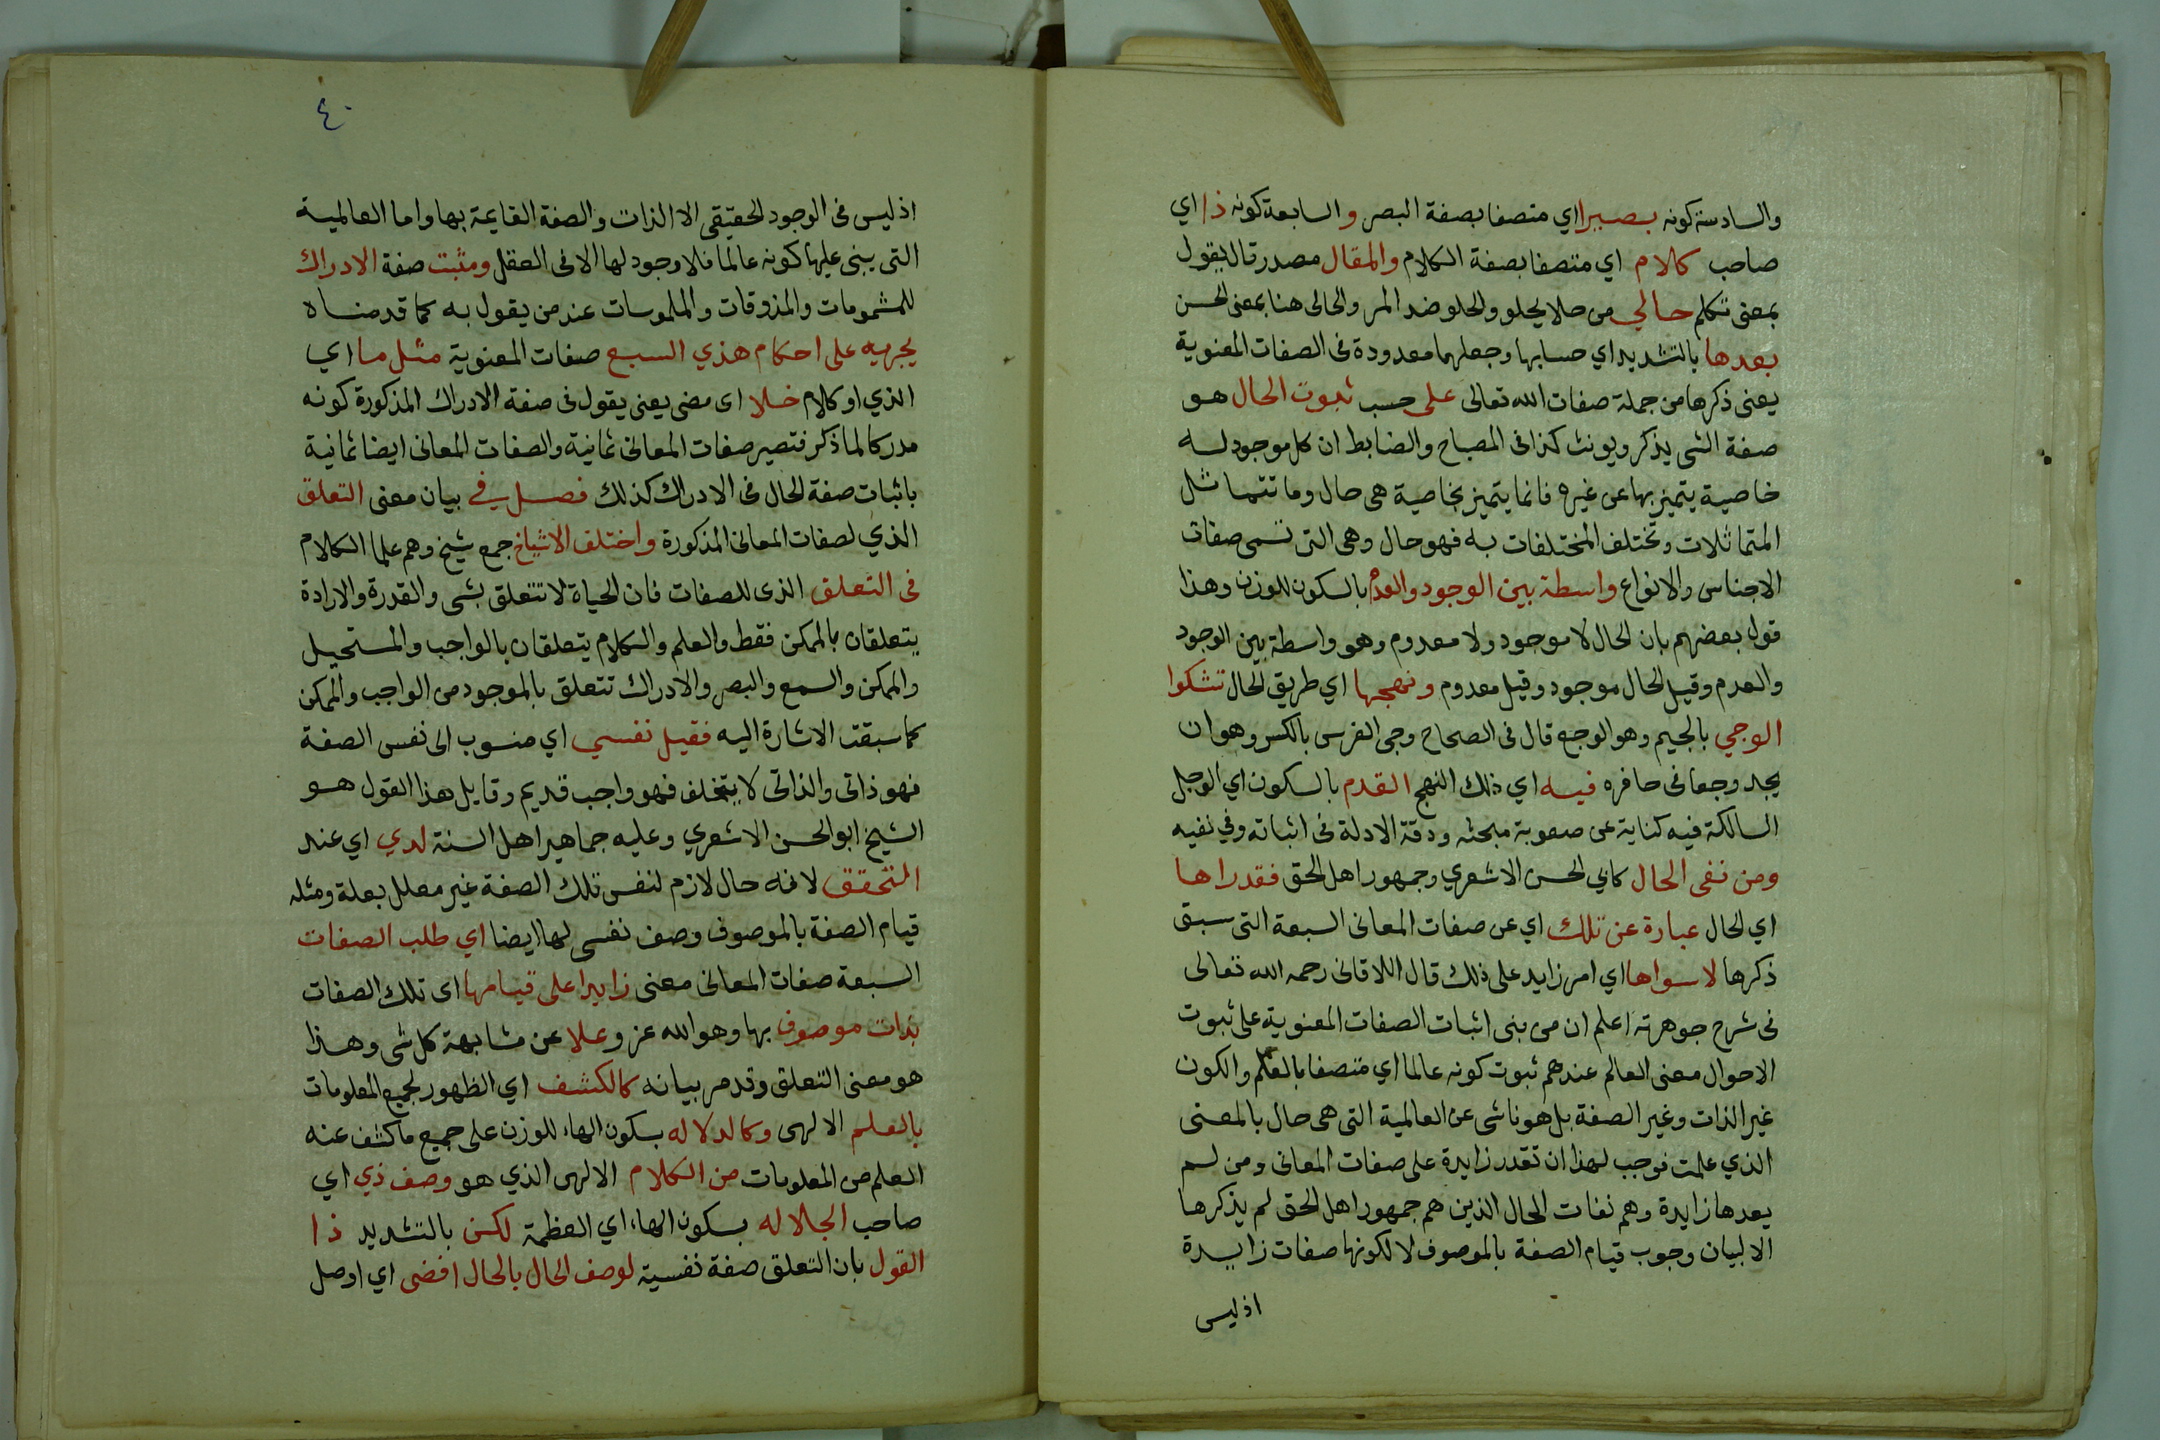 والسادسة كونه بصيرا اي متصفا بصفة البصر والسابعة كونه ذا اي
صاحب كلام اي متصفا بصفة الكلام والمقال مصدر قال يقول
بمعنى تكلم حالي من حلا يحلو والحلو ضد المر والحالى هنا بمعنى الحسن
بعدها بالتشديد اي حسابها وجعلهما معدودة فى الصفات المعنوية
يعنى ذكرها من جملة صفات الله تعالى على حسب ثبوت الحال هو
صفة الشى يذكر ويونث كذا فى المصباح والضابط ان كل موجود له
خاصية يتميز بها عن غيره فانما يتميز بخاصية هى حال وما تتماثل
المتماثلات وتختلف المختلفات به فهو حال وهى التى تسمى صفات
الاجناس والانواع واسطة بين الوجود والعدم بالسكون للوزن وهذا
قول بعضهم بان الحال لا موجود ولا معدوم وهو واسطة بين الوجود
والعدم وقيل الحال موجود وقيل معدوم ونهجها اي طريق الحال تشكوا
الوجي بالجيم وهو الوجع قال فى الصحاح وجى الفرس بالكسر وهو ان
يجد وجعا فى حافره فيه اي ذلك النهج القدم بالسكون اي الرجل
السالكة فيه كناية عن صعوبة مبحثه ودقة الادلة فى اثباته وفي نفيه
ومن نفى الحال كابي الحسن الاشعري وجمهور اهل الحق فقد راها
اي الحال عبارة عن تلك اي عن صفات المعانى السبعة التى سبق
ذكرها لا سواها اي امر زايد على ذلك قال اللاقانى رحمه الله تعالى
فى شرح جوهرته اعلم ان من بنى اثبات الصفات المعنوية على ثبوت
الاحوال معنى العالم عندهم ثبوت كونه عالما اي متصفا بالعلم والكون
غير الذات وغير الصفة بل هو ناشى عن العالمية التى هى حال بالمعنى
الذي علمت فوجب لهذا ان تقدر زايدة على صفات المعانى ومن لم
يعدها زايدة وهم نفات الحال الذين هم جمهور اهل الحق لم يذكرها
الا لبيان وجوب قيام الصفة بالموصوف لا لكونها صفات زايدة
اذ ليس
٤٠
اذ ليس فى الوجود الحقيقى الا الذات والصفة القايمة بها واما العالمية
التى يبنى عليها كونه عالما فلا وجود لها الا فى العقل ومثبت صفة الادراك
للمشمومات والمذوقات والملموسات عند من يقول به كما قدمناه
يجريه على احكام هذي السبع صفات المعنوية مثل ما اي
الذي او كلام خلا اى مضى يعنى يقول فى صفة الادراك المذكورة كونه
مدركا لما ذكر فتصير صفات المعانى ثمانية والصفات المعانى ايضا ثمانية
باثبات صفة الحال فى الادراك كذلك فصل في بيان معنى التعلق
الذي لصفات المعانى المذكورة واختلف الاشياخ جمع شيخ وهم علما الكلام
فى التعلق الذى للصفات فان الحياة لا تتعلق بشى والقدرة والارادة
يتعلقان بالممكن فقط والعلم والكلام يتعلقان بالواجب والمستحيل
والممكن والسمع والبصر والادراك تتعلق بالموجود من الواجب والممكن
كما سبقت الاشارة اليه فقيل نفسي اي منسوب الى نفس الصفة
فهو ذاتى والذاتى لا يتخلف فهو واجب قديم وقايل هذا القول هو
الشيخ ابو الحسن الاشعري وعليه جماهير اهل السنة لدي اي عند
التحقق لانه حال لازم لنفس تلك الصفة غير معلل بعلة ومثله
قيام الصفة بالموصوف وصف نفسى لها ايضا اي طلب الصفات
السبعة صفات المعانى معنى زايدا على قيامها اى تلك الصفات
بذات موصوف بها وهو الله عز وعلا عن مشابهة كل شى وهذا
هو معنى التعلق وقد مر بيانه كالكشف اي الظهور لجميع المعلومات
بالعلم الالهى وكالدلاله بسكون الهاء للوزن على جميع ما كشف عنه
العلم من المعلومات من الكلام الالهى الذي هو وصف ذي اي
صاحب الجلاله بسكون الهاء اي العظمة لكن بالتشديد ذا
القول بان التعلق صفة نفسية لوصف الحال بالحال افضى اي اوصل